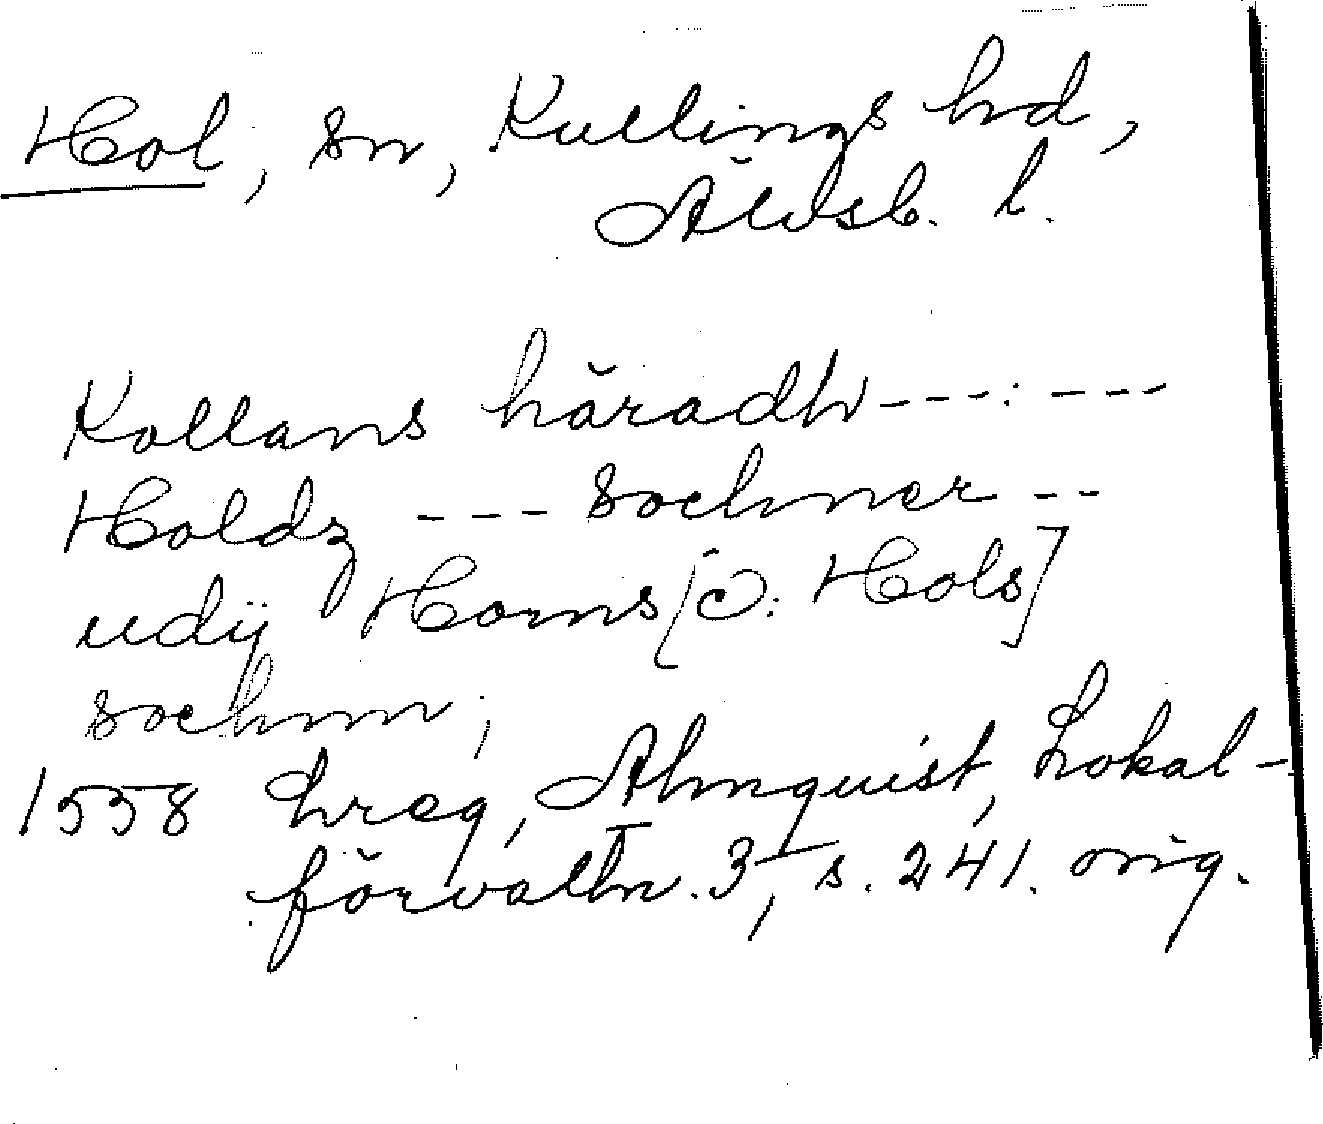 Hol, sn, Kullings hd,
Älvsb. l.
Kollans häradh ---:---
Holdz --- sochner --
udij Horns [ɔ: Hols]
sochnn;
1558 Lreg, Almquist, Lokal-
förvaltn. 3, s. 241. orig.